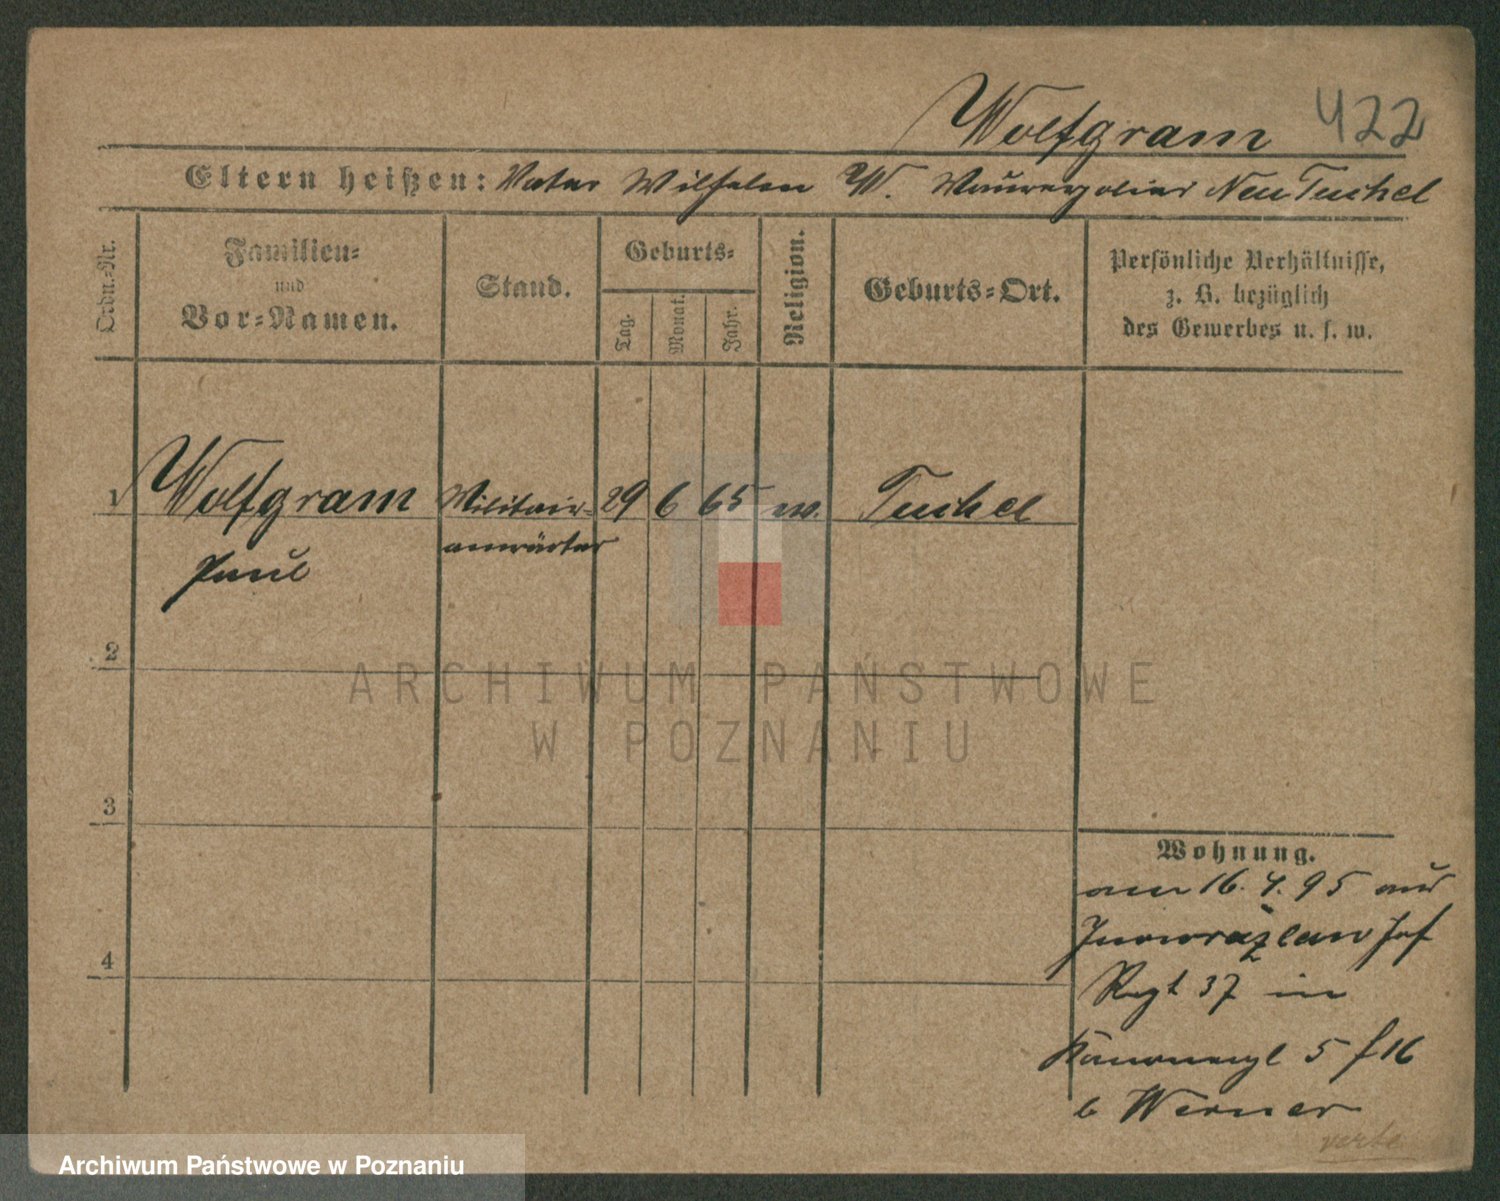 Wolfgram 422
Eltern heißen: Vater Wilhelm W. Maurerpolier Neu Tuchel
Ordn.-Nr.
Familien-
und
Vor-Namen.
Stand.
Geburts-
Tag.
Monat.
Jahr.
Religion.
Geburts-Ort.
Persönliche Verhältnisse,
z. B. bezüglich
des Gewerbes u. s. w.
1 Wolfgram Militair- 29 6 65 ev. Tuchel
Paul anwärter
2
3
4
Wohnung.
am 16. 4. 95 aus
Inowrazlaw Inf
Regt 37 in
5 16
b Werner
ARCHIWUM PAŃSTWOWE
W POZNANIU
Archiwum Państwowe w Poznaniu